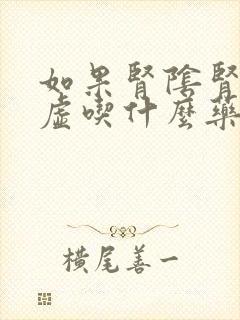 如果腎陰腎
虛喫什麼藥
橫尾善一